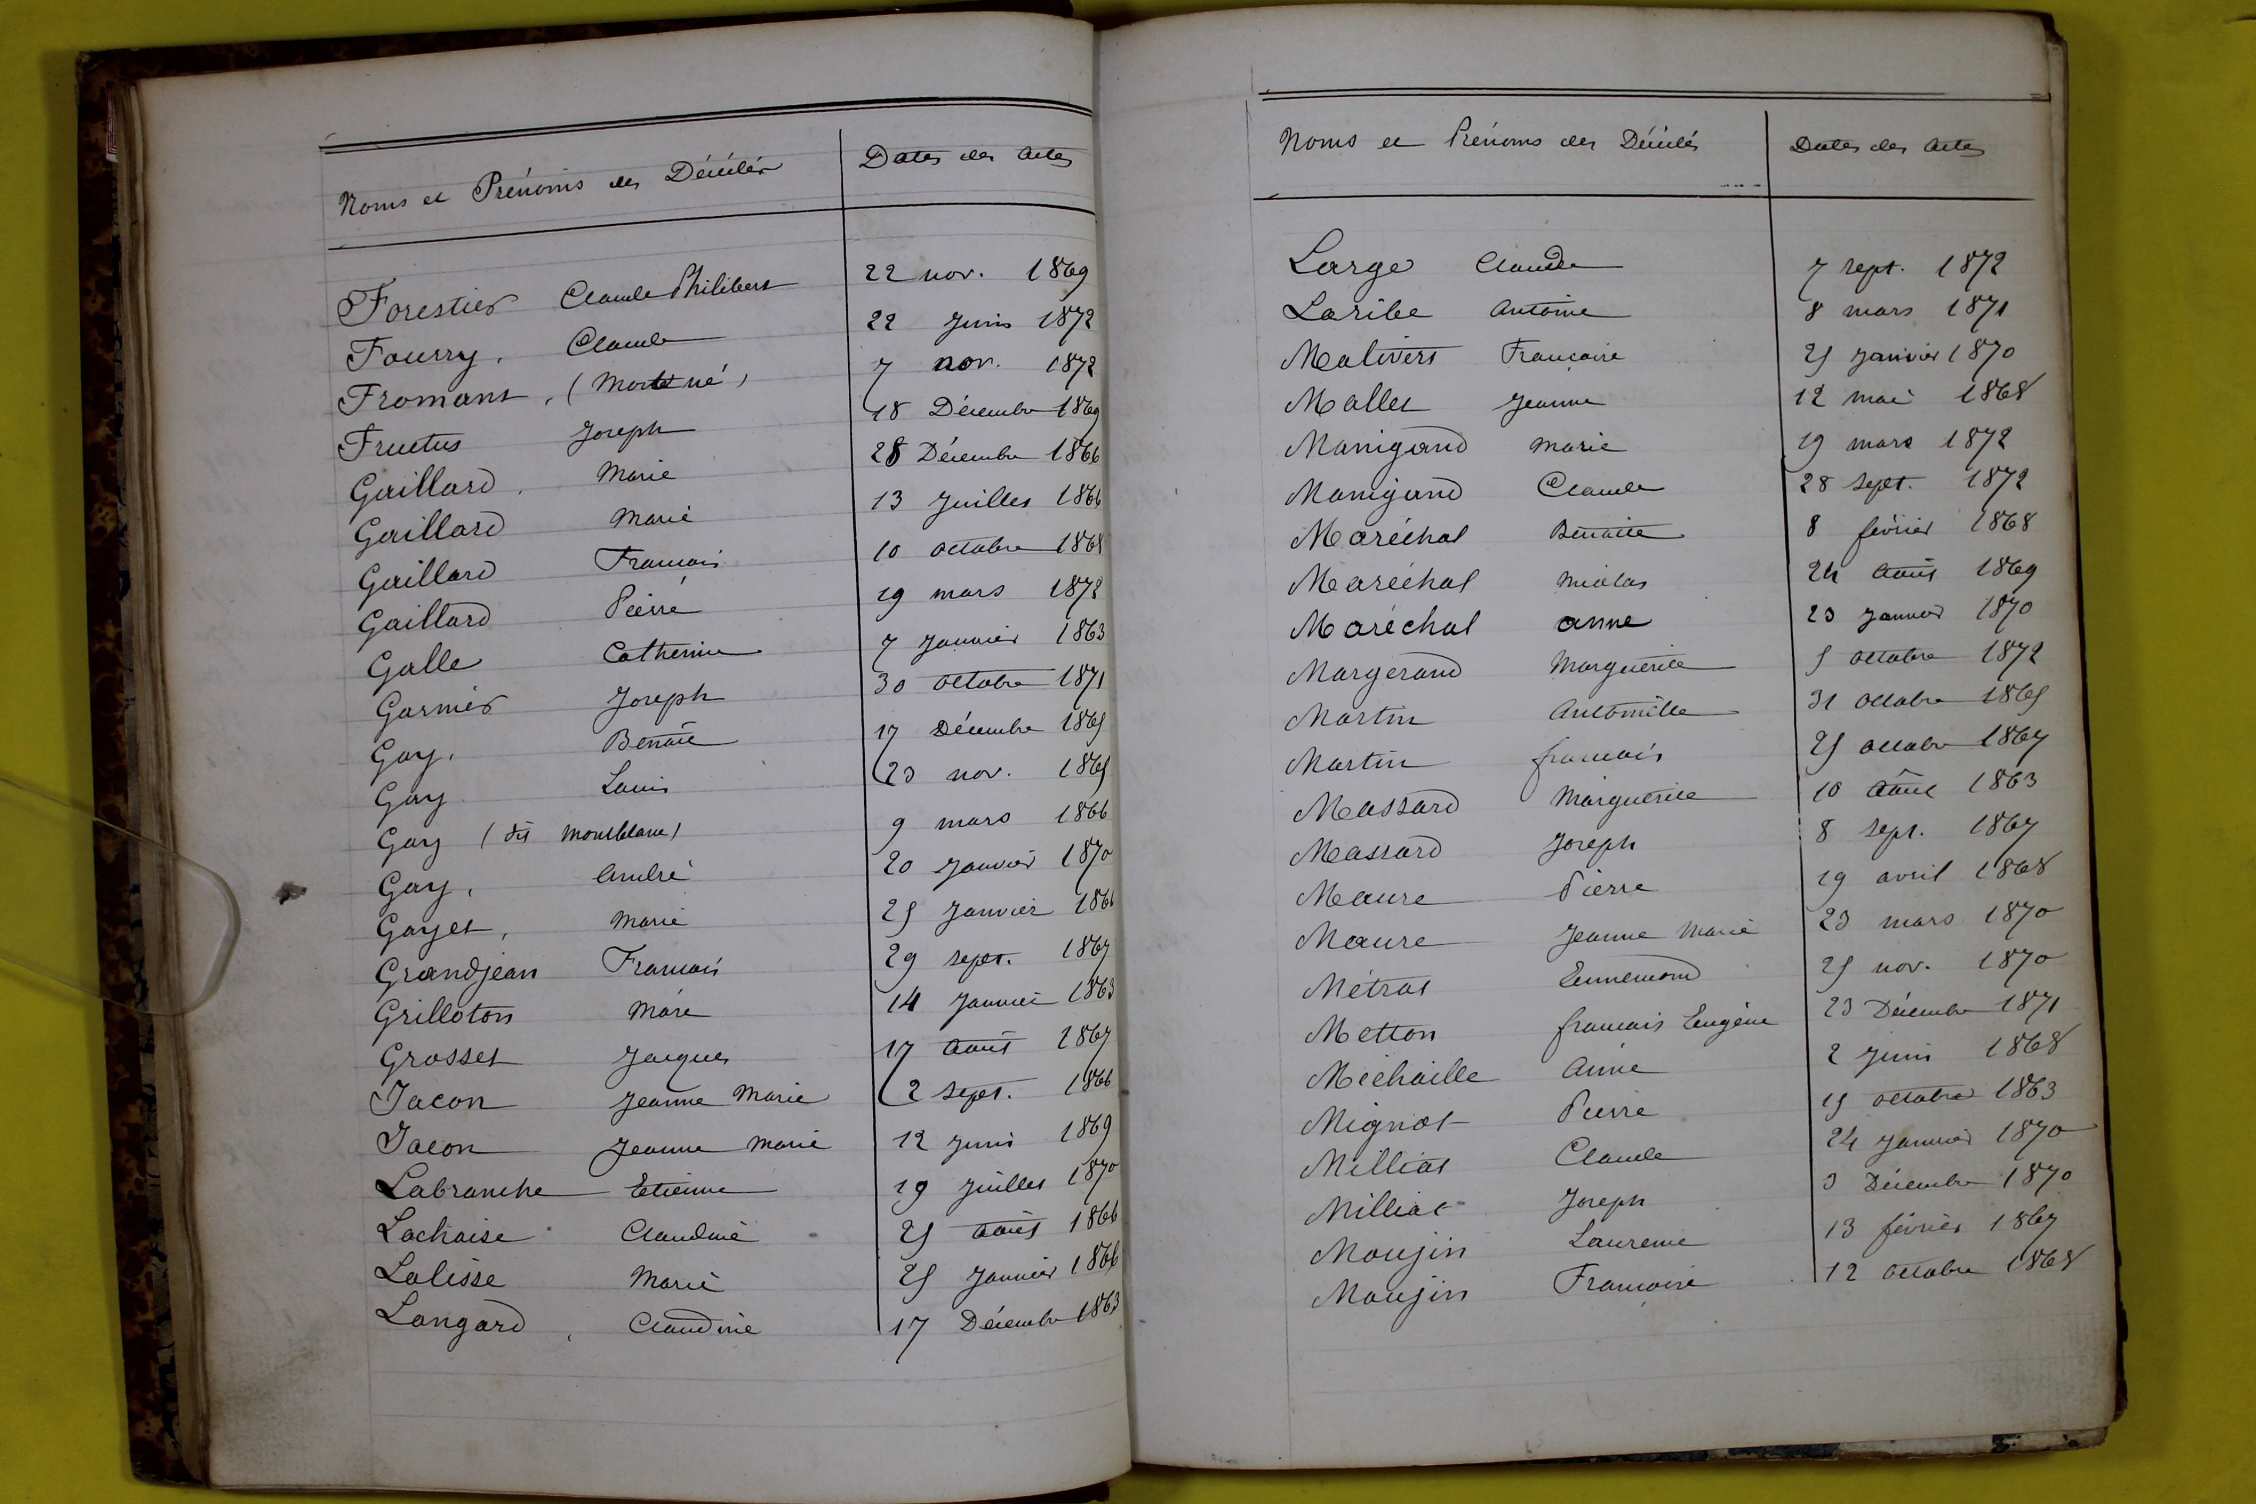 Noms et Prénoms des Décédés Dates des Actes
Forestier Claude Philibert 22 nov. 1869
Fourry, Claude 22 Juin 1872
Fromant, (Mort né) 7 nov. 1872
Fructus Joseph 18 Décembre 1869
Gaillard, Marie 28 Décembre 1866
Gaillard Marie 13 Juillet 1866
Gaillard François 10 octobre 1868
Gaillard Pierre 19 mars 1872
Galle Catherine 7 Janvier 1863
Garnier Joseph 30 octobre 1871
Gay, Benoit 17 Décembre 1865
Gay Louis 23 nov. 1865
Gay (dit Montblanc) 9 mars 1866
Gay, André 20 Janvier 1870
Gayet, Marie 25 Janvier 1866
Grandjean François 29 sept. 1867
Grilloton Marie 14 Janvier 1863
Grosset Jacques 17 Août 1867
Jacon Jeanne Marie 2 sept. 1866
Jacon Jeanne Marie 12 Juin 1869
Labranche Etienne 19 Juillet 1870
Lachaise Claudine 25 Août 1866
Lalisse Marie 25 Janvier 1866
Langard, Claudine 17 Décembre 1863
Noms et Prénoms des Décédés Dates des Actes
Large Claude 7 sept. 1872
Laribe Antoine 8 mars 1871
Malivert Françoise 25 Janvier 1870
Mallet Jeanne 12 mai 1868
Manigand Marie 19 mars 1872
Manigand Claude 28 sept. 1872
Maréchal Benoite 8 février 1868
Maréchal Nicolas 24 Août 1869
Maréchal anne 23 Janvier 1870
Margerand Marguerite 5 octobre 1872
Martin Antoinette 31 octobre 1865
Martin françois 25 octobre 1867
Massard Marguerite 10 Août 1863
Massard Joseph 8 sept. 1867
Maure Pierre 19 avril 1868
Maure Jeanne Marie 23 mars 1870
Métrat Ennemond 25 nov. 1870
Metton françois Eugène 23 Décembre 1871
Méchaille Anne 2 Juin 1868
Mignot Pierre 15 octobre 1863
Milliat Claude 24 Janvier 1870
Milliat Joseph 3 Décembre 1870
Moujin Laurence 13 février 1867
Moujin Françoise 12 octobre 1868